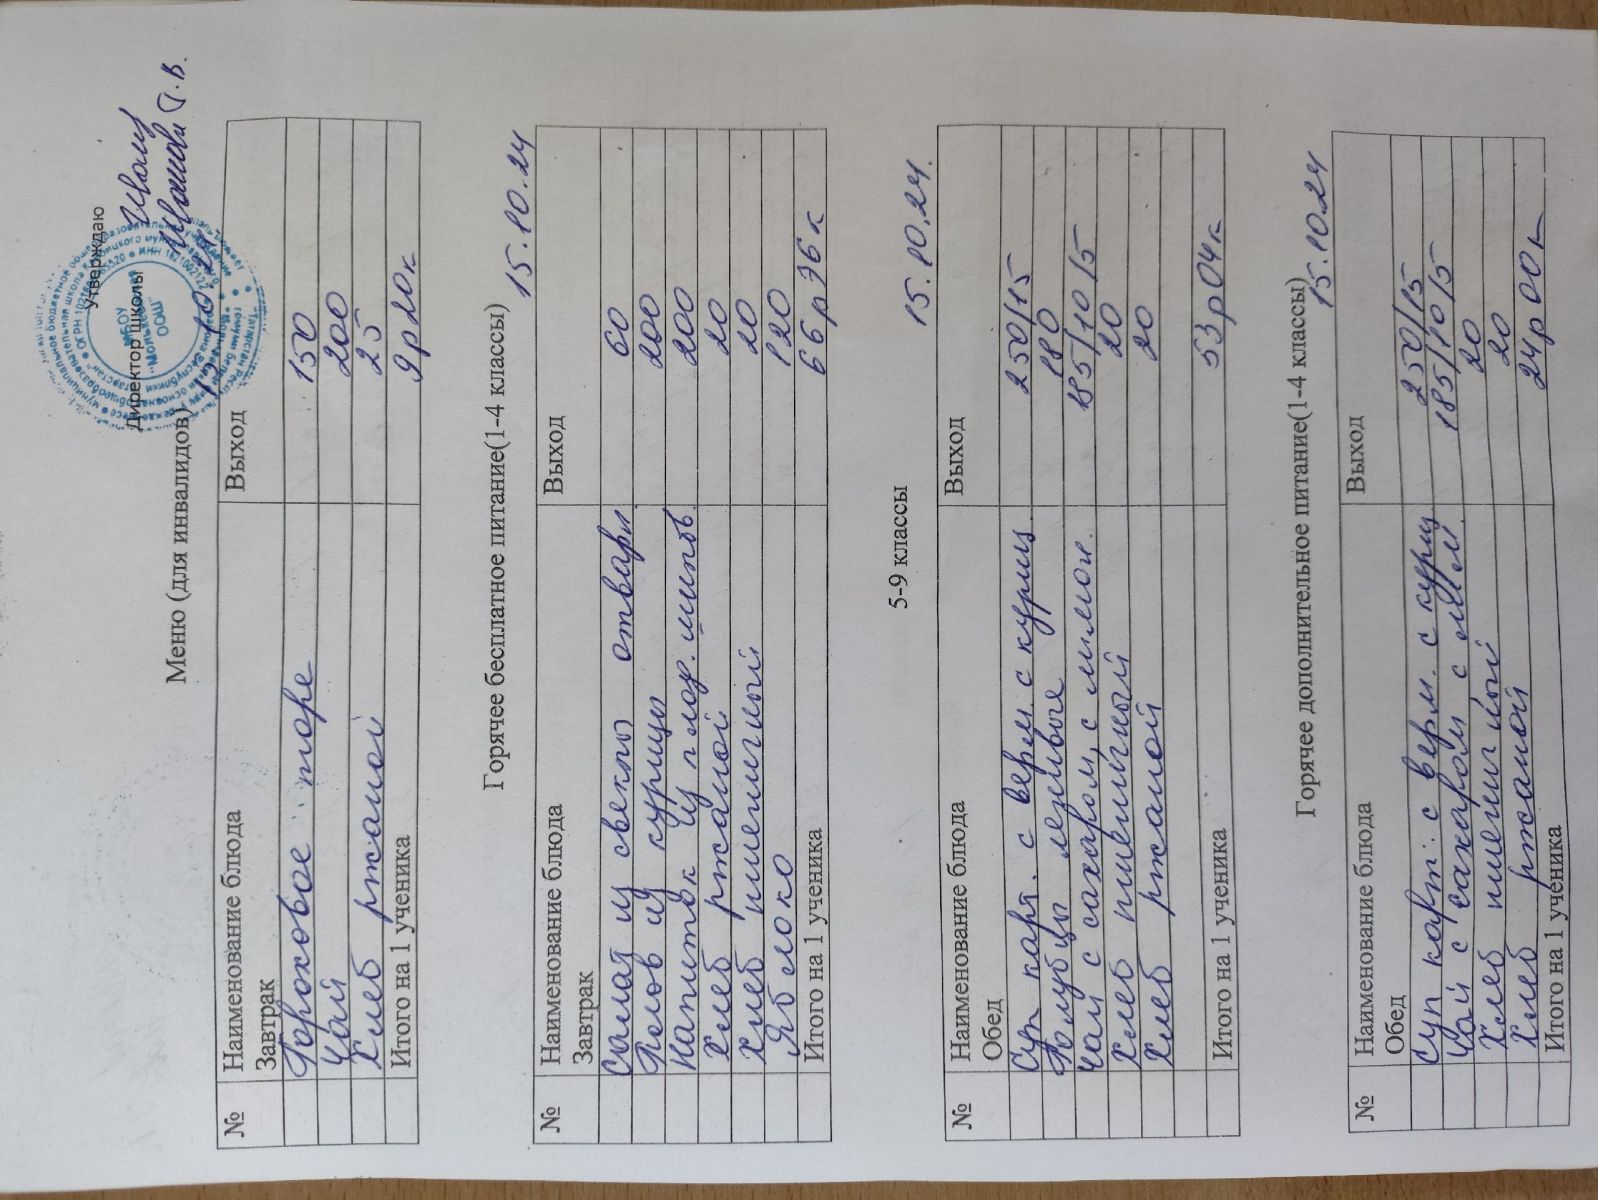 Утверждаю
Директор школы
МБОУ
ООШ"
Меню (для инвалидов)
№ Наименование блюда Выход
Завтрак
Гороховое пюре 150
Чай 200
Хлеб ржаной 25
Итого на 1 ученика 9р20к
Горячее бесплатное питание(1-4 классы)
15.10.24
№ Наименование блюда Выход
Завтрак
Салат из свеклы отварн. 60
Плов из курицы 200
Напиток из плод. шипов. 200
Хлеб ржаной 20
Хлеб пшеничный 20
Яблоко 120
Итого на 1 ученика 66р96к
5-9 классы 15.10.24.
№ Наименование блюда Выход
Обед
Суп карт. с верм. с куриц. 250/15
Голубцы ленивые 180
Чай с сахаром, с лимон. 185/10/5
Хлеб пшеничный 20
Хлеб ржаной 20
Итого на 1 ученика 53р04к
Горячее дополнительное питание(1-4 классы)
15.10.24
№ Наименование блюда Выход
Обед
Суп карт. с верм. с куриц 250/15
Чай с сахаром с 185/10/5
Хлеб пшеничный 20
Хлеб ржаной 20
Итого на 1 ученика 24р00к